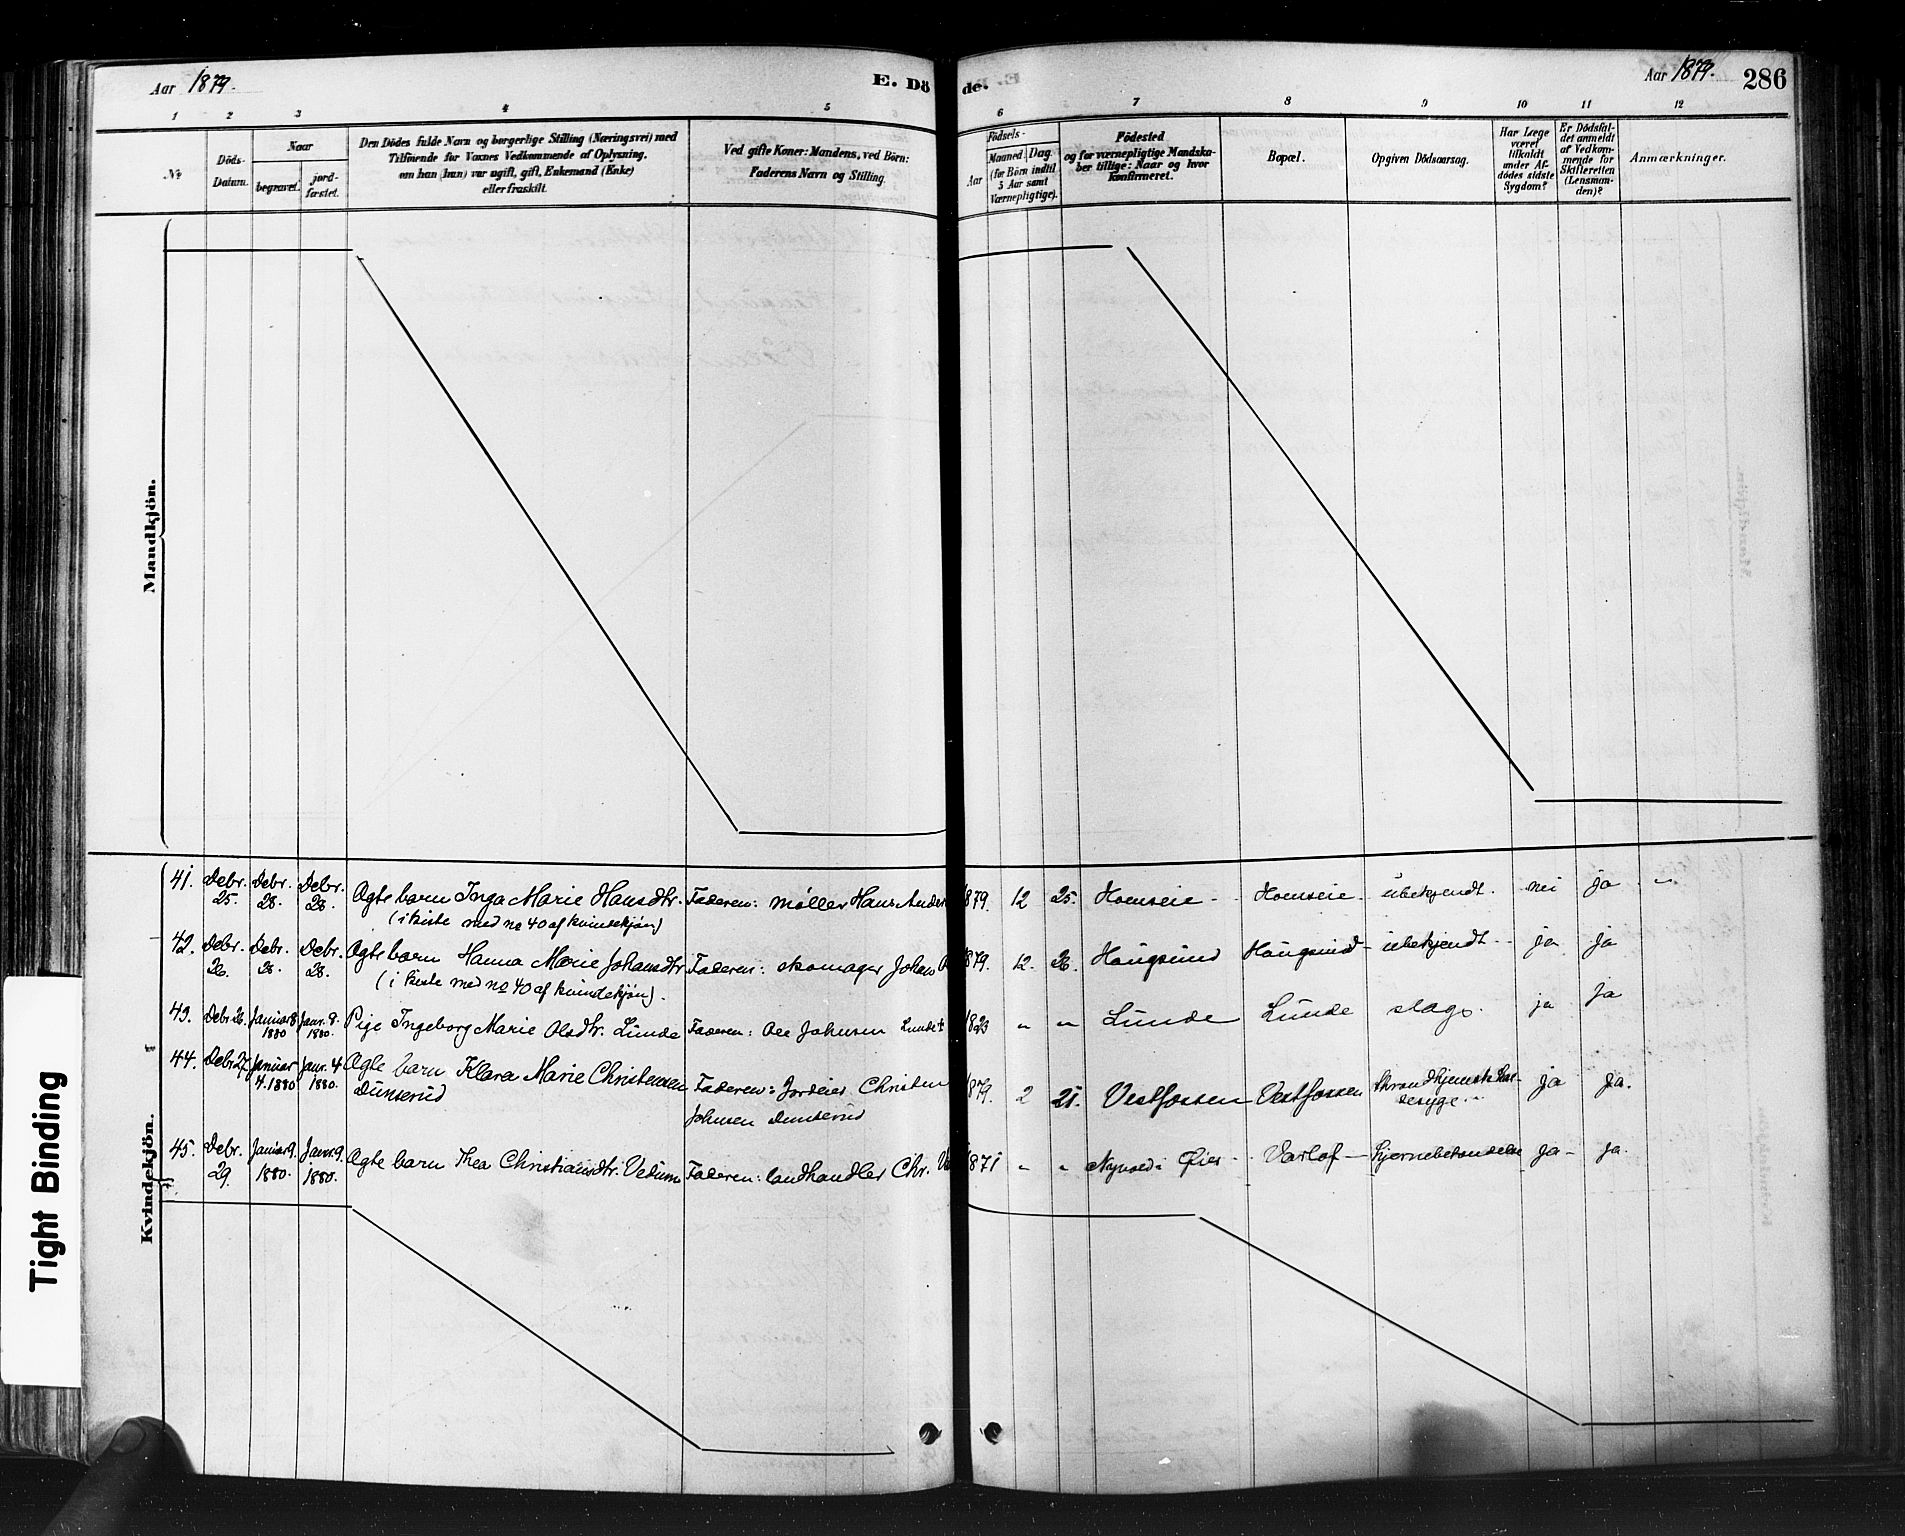 Aar 1879.
E. Dö
de.
Aar 1879.
286
1 2 3 4 5
6 7 8 9 10 11 12
No
Döds-
Datum.
Naar
begravet.
jord-
fæstet.
Den Dödes fulde Navn og borgerlige Stilling (Næringsvei) med
Tilföiende for Voxnes Vedkommende af Oplysning,
om han (hun) var ugift, gift, Enkemand (Enke)
eller fraskilt.
Ved gifte Koner: Mandens, ved Börn:
Faderens Navn og Stilling.
Födsels-
Aar
Maaned. Dag.
(for Börn indtil
5 Aar samt
Værnepligtige).
Födested
og for værnepligtige Mandska-
ber tillige: Naar og hvor
konfirmeret.
Bopæl.
Opgiven Dödsaarsag.
Har Læge
været
tilkaldt
under Af-
dödes sidste
Sygdom?
Er Dödsfal-
det anmeldt
af Vedkom-
mende for
Skifteretten
(Lensman-
den)?
Anmærkninger.
Mandkjön.
Kvindekjön.
41. Debr. 25. Debr. 28. Debr. 28. Ægte barn Inga Marie Hansdtr. Faderen: møller Hans Ander 1879. 12 25. Hoenseie Hoenseie ubekjendt. nei ja
(i kiste med no 40 af kvindekjön)
42. Debr. 26. Debr. 28. Debr. 28. Ægte barn Hanna Marie Johansdtr Faderen: skomager Johan 1879. 12. 26. Hougsund Hougsund ubekjendt ja ja
(i kiste med no 40 af kvindekjön).
43. Debr 26. Januar 8 1880 Janr. 8. 1880. Pige Ingeborg Marie Olsdtr. Lunde Faderen: Ole Johnsen Lunde † 1823 " " Lunde Lunde slag. ja ja
44. Debr 27. Januar 4. 1880 Janr. 4 1880. Ægte barn Klara Marie Christensen Faderen: Jordeier Christen 1879. 2 21. Vestfossen Vestfossen ja ja.
Dunserud Johnsen Dunserud
45. Debr. 29. Januar 9. 1880. Janr. 9. 1880. Ægte barn Thea Christiansdtr. Vedum Faderen: landhandler Chr. 1871 " " Øier Varlof hjernebetændelse ja ja.
Tight Binding